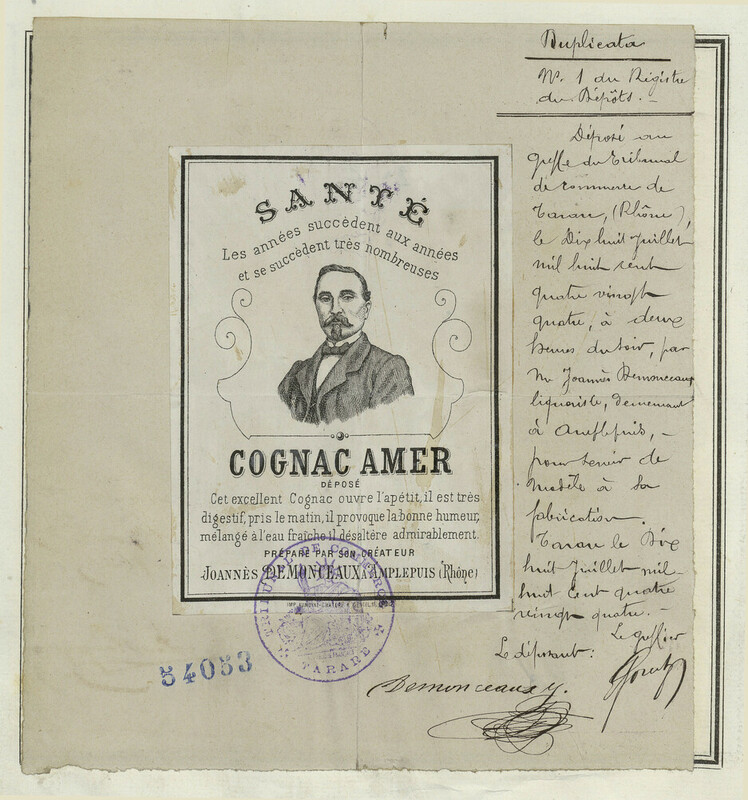 Duplicata
N°. 1 du Régistre
des Dépôts. -
Déposé au
greffe du Tribunal
de commerce de
Tarare, (Rhône),
le Dix huit Juillet
mil huit cent
quatre vingt
quatre, à deux
heures du soir, par
Mr Joannès Demonceaux
liquoriste, demeurant
à Amplepuis, -
pour servir de
modèle à sa
fabrication.
Tarare le Dix
huit Juillet mil
huit cent quatre
vingt quatre. -
Le greffier
Le déposant:
Demonceaux J.
SANTÉ
Les années succèdent aux années
et se succèdent très nombreuses
COGNAC AMER
DÉPOSÉ
Cet excellent Cognac ouvre l'apétit, il est très
digestif, pris le matin, il provoque la bonne humeur,
mélangé à l'eau fraîche il désaltère admirablement.
PRÉPARÉ PAR SON CRÉATEUR
JOANNÈS DEMONCEAUX A AMPLEPUIS (Rhône)
TRIBUNAL DE COMMERCE
TARARE
54053